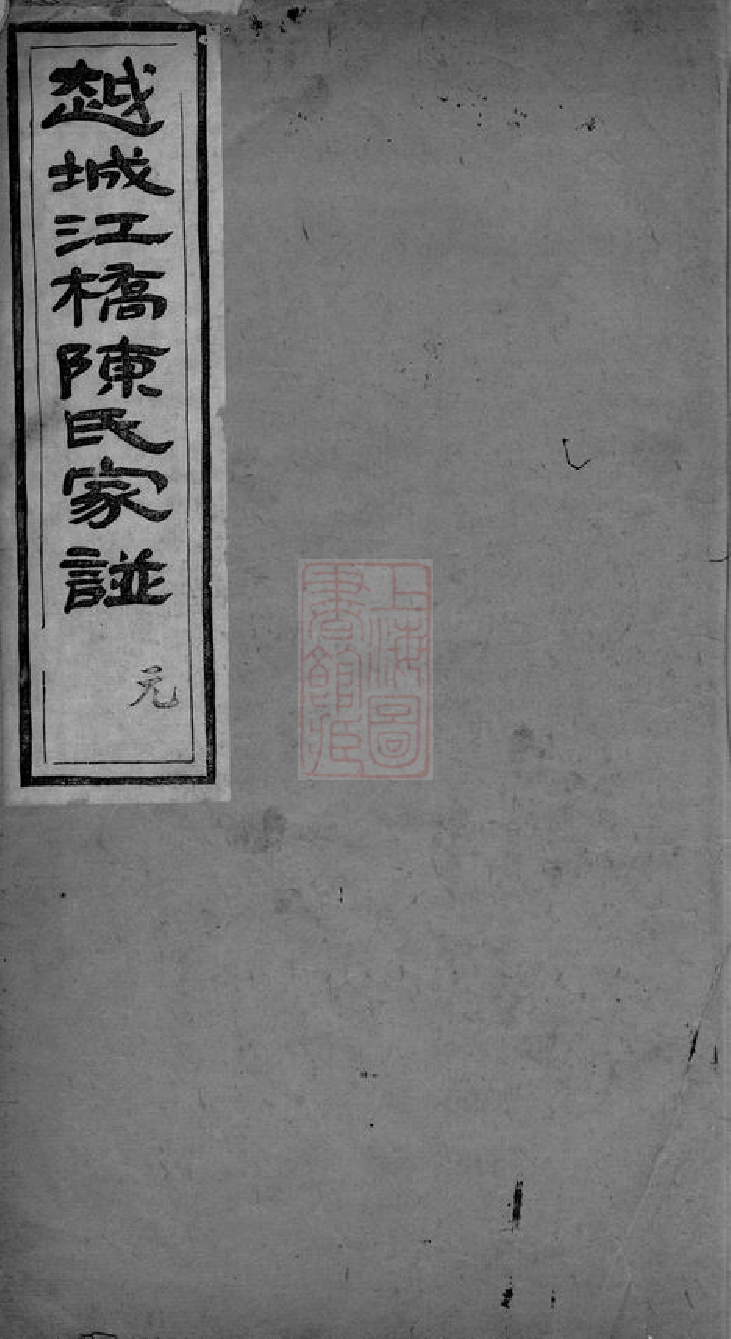 越城江橋陳氏家譜
元
上海圖
書館藏